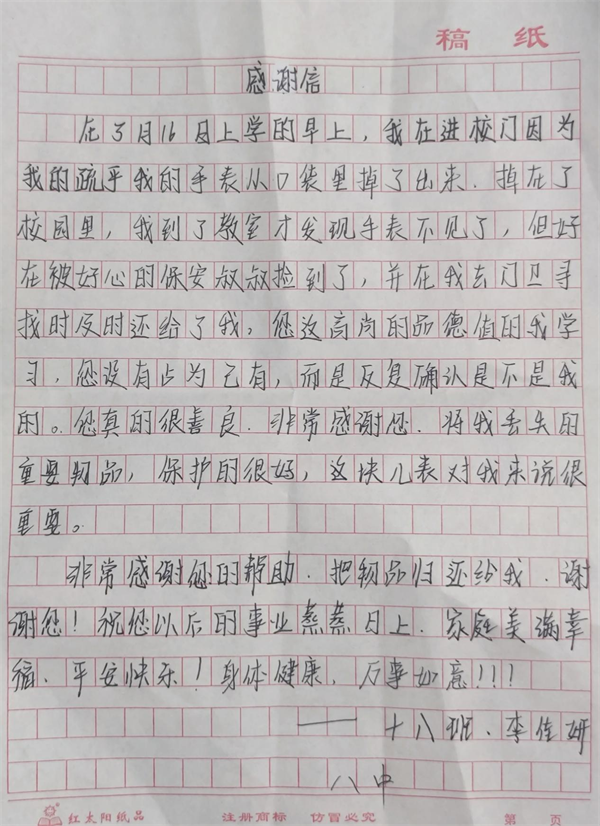 稿 纸
感谢信
在3月16日上学的早上，我在进校门因为
我的疏乎我的手表从口袋里掉了出来.掉在了
校园里，我到了教室才发现手表不见了，但好
在被好心的保安叔叔捡到了，并在我去门卫寻
找时及时还给了我，您这高尚的品德值的我学
习，您没有占为己有，而是反复确认是不是我
的。您真的很善良.非常感谢您.将我丢失的
重要物品，保护的很好，这块儿表对我来说很
重要。
非常感谢您的帮助.把物品归还给我.谢
谢您！祝您以后的事业蒸蒸日上.家庭美满幸
福、平安快乐！身体健康、万事如意！！！
——十八班.李佳妍
八中
红太阳纸品 注册商标 仿冒必究 第 页